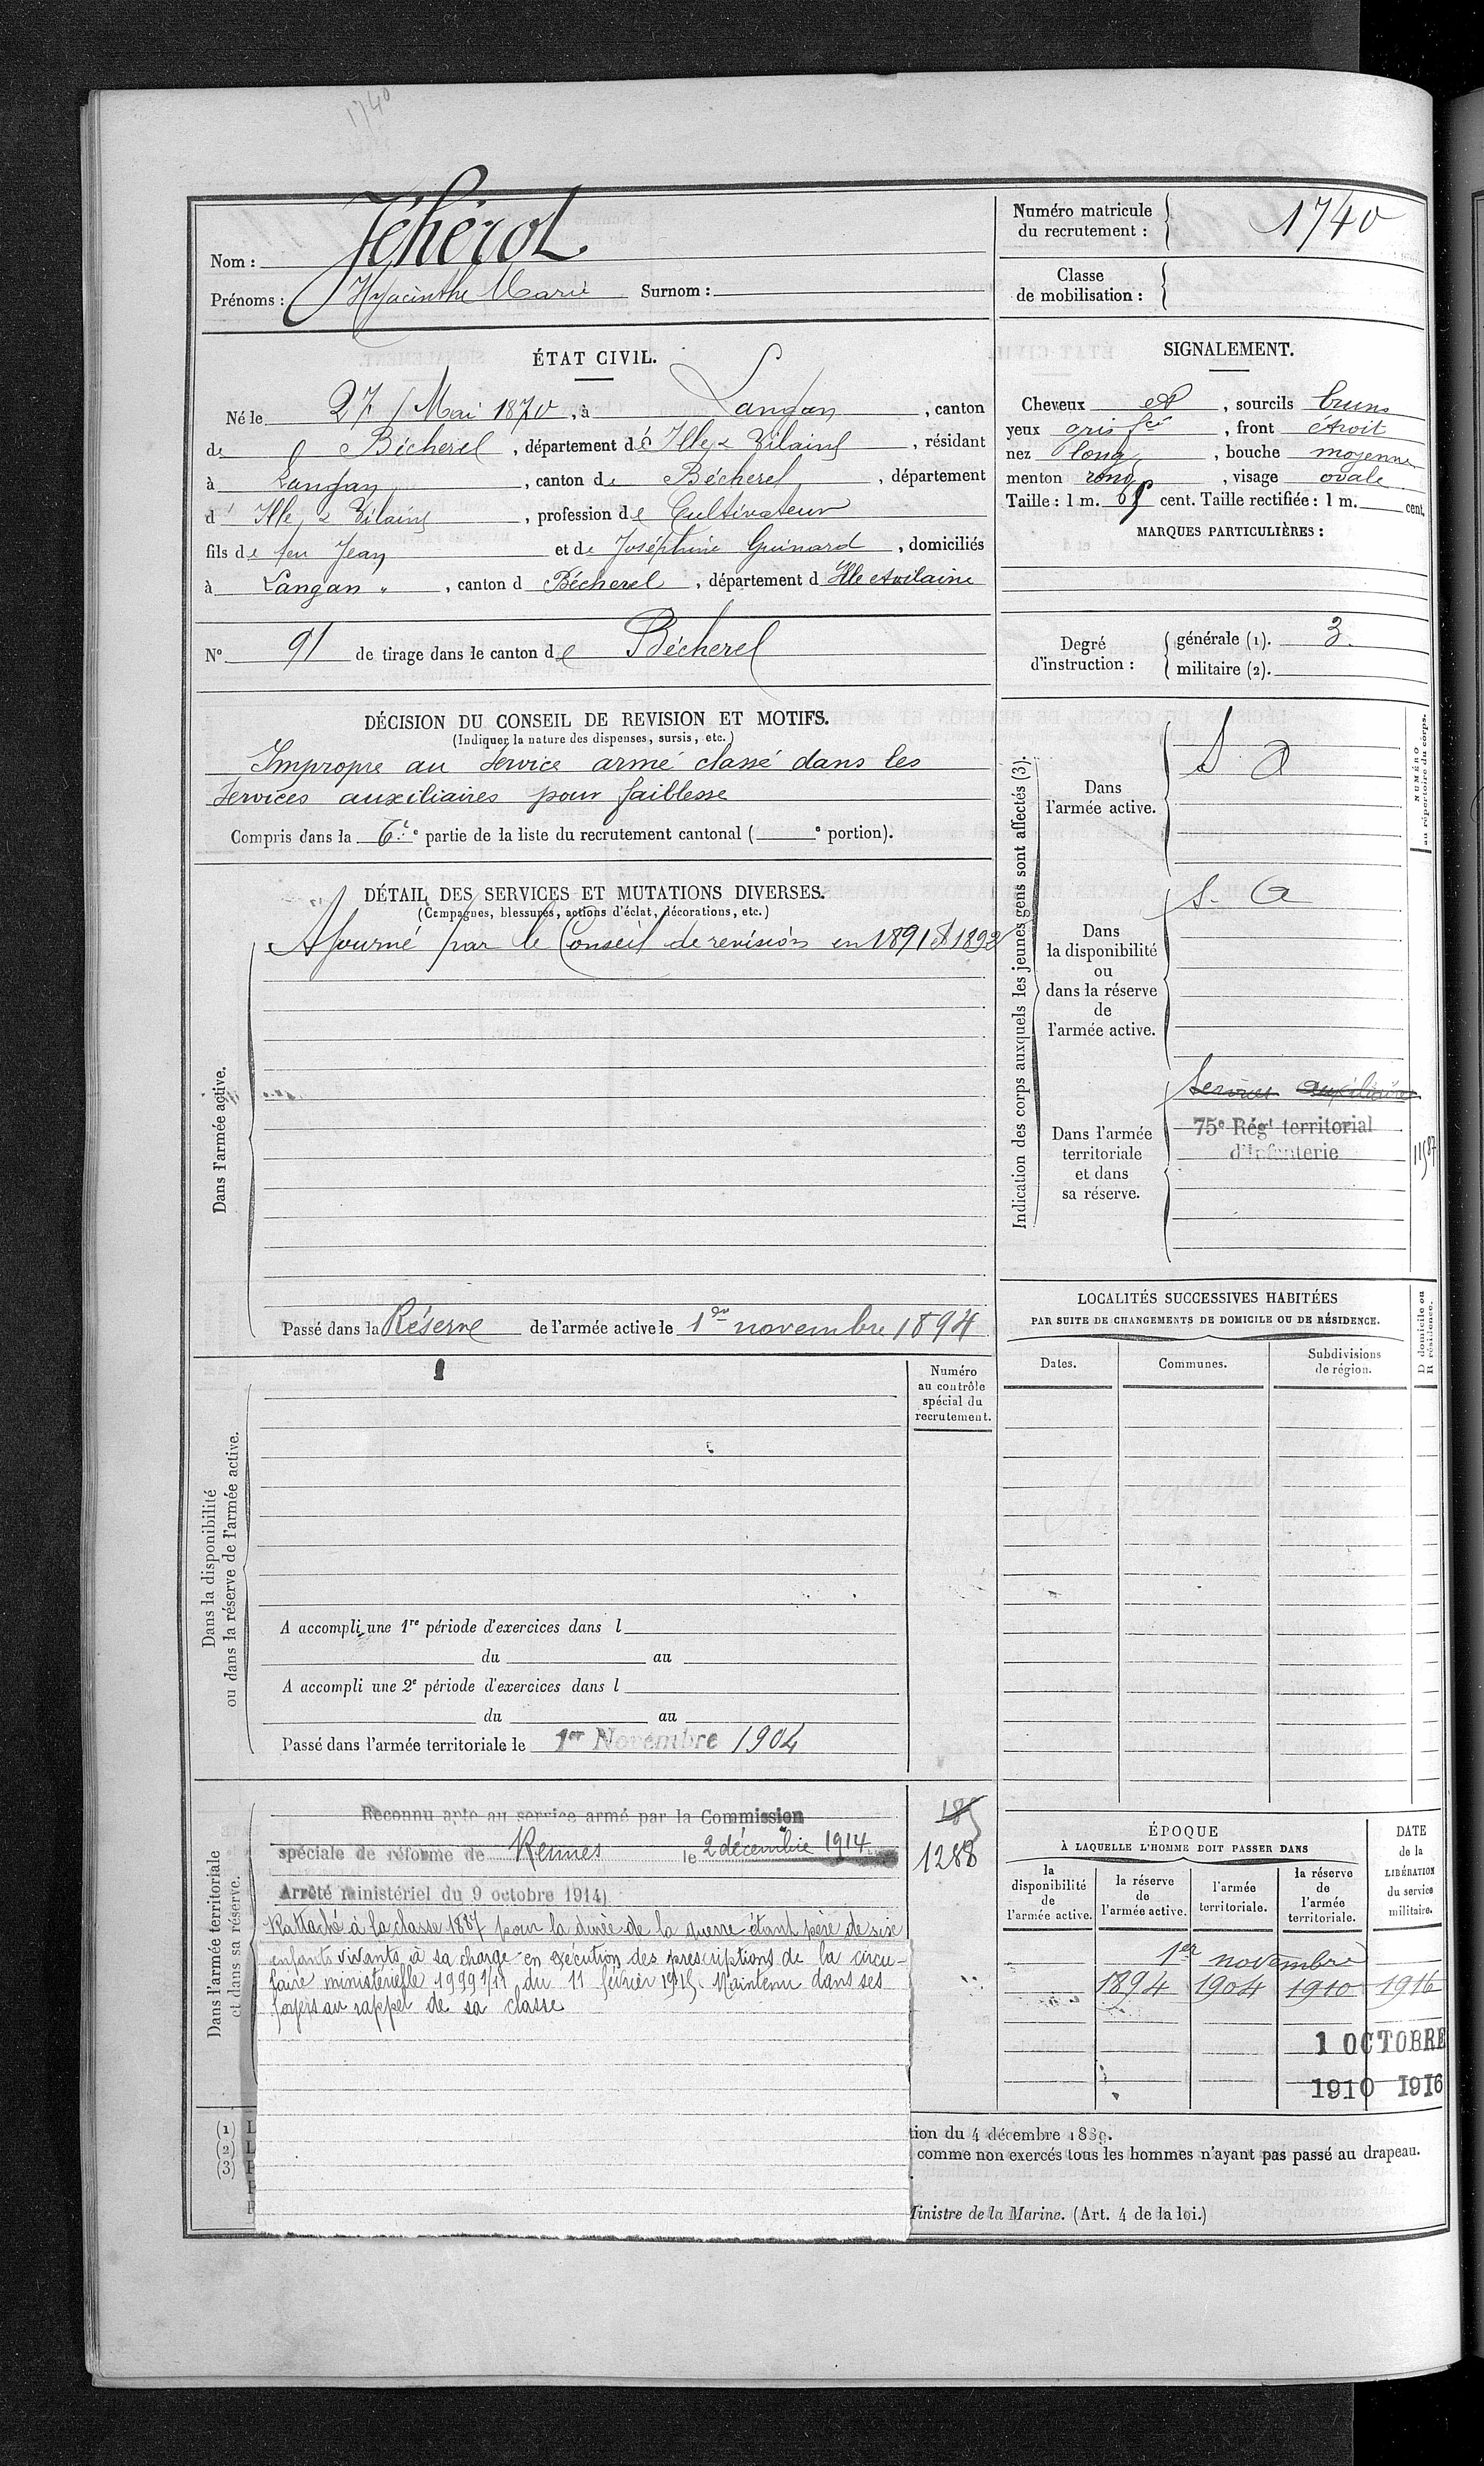 1740
Nom : Jéhérot
Prénoms : Hyacinthe Marie Surnom :
Numéro matricule du recrutement : 1740
Classe de mobilisation :
ÉTAT CIVIL.
Né le 27 Mai 1870, à Langan, canton
de Bécherel, département d'Ille & Vilaine, résidant
à Langan, canton de Bécherel, département
d' Ille & Vilaine, profession de Cultivateur
fils de feu Jean et de Joséphine Guinard, domiciliés
à Langan, canton d Bécherel, département d Ille et Vilaine
N° 91 de tirage dans le canton de Bécherel
SIGNALEMENT.
Cheveux et, sourcils bruns
yeux gris fcé, front étroit
nez long, bouche moyenne
menton rond, visage ovale
Taille : 1 m. cent. Taille rectifiée : 1 m. cent.
MARQUES PARTICULIÈRES :
Degré d'instruction : générale (1). 3.
militaire (2).
DÉCISION DU CONSEIL DE REVISION ET MOTIFS.
(Indiquer la nature des dispenses, sursis, etc.)
Impropre au service armé classé dans les
services auxiliaires pour faiblesse
Compris dans la 6e partie de la liste du recrutement cantonal ( e portion).
DÉTAIL DES SERVICES ET MUTATIONS DIVERSES.
(Campagnes, blessures, actions d'éclat, décorations, etc.)
Dans l'armée active.
Ajourné par le Conseil de revision en 1891 & 1892
Passé dans la Réserve de l'armée active le 1er novembre 1894
Indication des corps auxquels les jeunes gens sont affectés (3).
NUMÉRO au répertoire du corps.
Dans l'armée active.
S A
Dans la disponibilité ou dans la réserve de l'armée active.
S. A
Dans l'armée territoriale et dans sa réserve.
Services auxiliaires
75e Régt territorial
d'Infanterie
LOCALITÉS SUCCESSIVES HABITÉES
PAR SUITE DE CHANGEMENTS DE DOMICILE OU DE RÉSIDENCE.
Dates. Communes. Subdivisions de région.
D domicile ou R résidence.
Dans la disponibilité
ou dans la réserve de l'armée active.
Numéro au contrôle spécial du recrutement.
A accompli une 1re période d'exercices dans l
du au
A accompli une 2e période d'exercices dans l
du au
Passé dans l'armée territoriale le 1er Novembre 1904
Dans l'armée territoriale
et dans sa réserve.
Reconnu apte au service armé par la Commission
spéciale de réforme de Rennes le 2 décembre 1914
Arrêté ministériel du 9 octobre 1914)
Rattaché à la classe 1887 pour la durée de la guerre étant père de six
enfants vivants à sa charge en exécution des prescriptions de la circu-
laire ministérielle 19991/11 du 11 février 1915. Maintenu dans ses
foyers au rappel de sa classe
1288
ÉPOQUE
À LAQUELLE L'HOMME DOIT PASSER DANS
la disponibilité de l'armée active.
la réserve de l'armée active.
l'armée territoriale.
la réserve de l'armée territoriale.
DATE de la LIBÉRATION du service militaire.
1er novembre
1894 1904 1910 1916
1 OCTOBRE
1910 1916
(1)
(2)
(3)
tion du 4 décembre 1889.
comme non exercés tous les hommes n'ayant pas passé au drapeau.
Ministre de la Marine. (Art. 4 de la loi.)